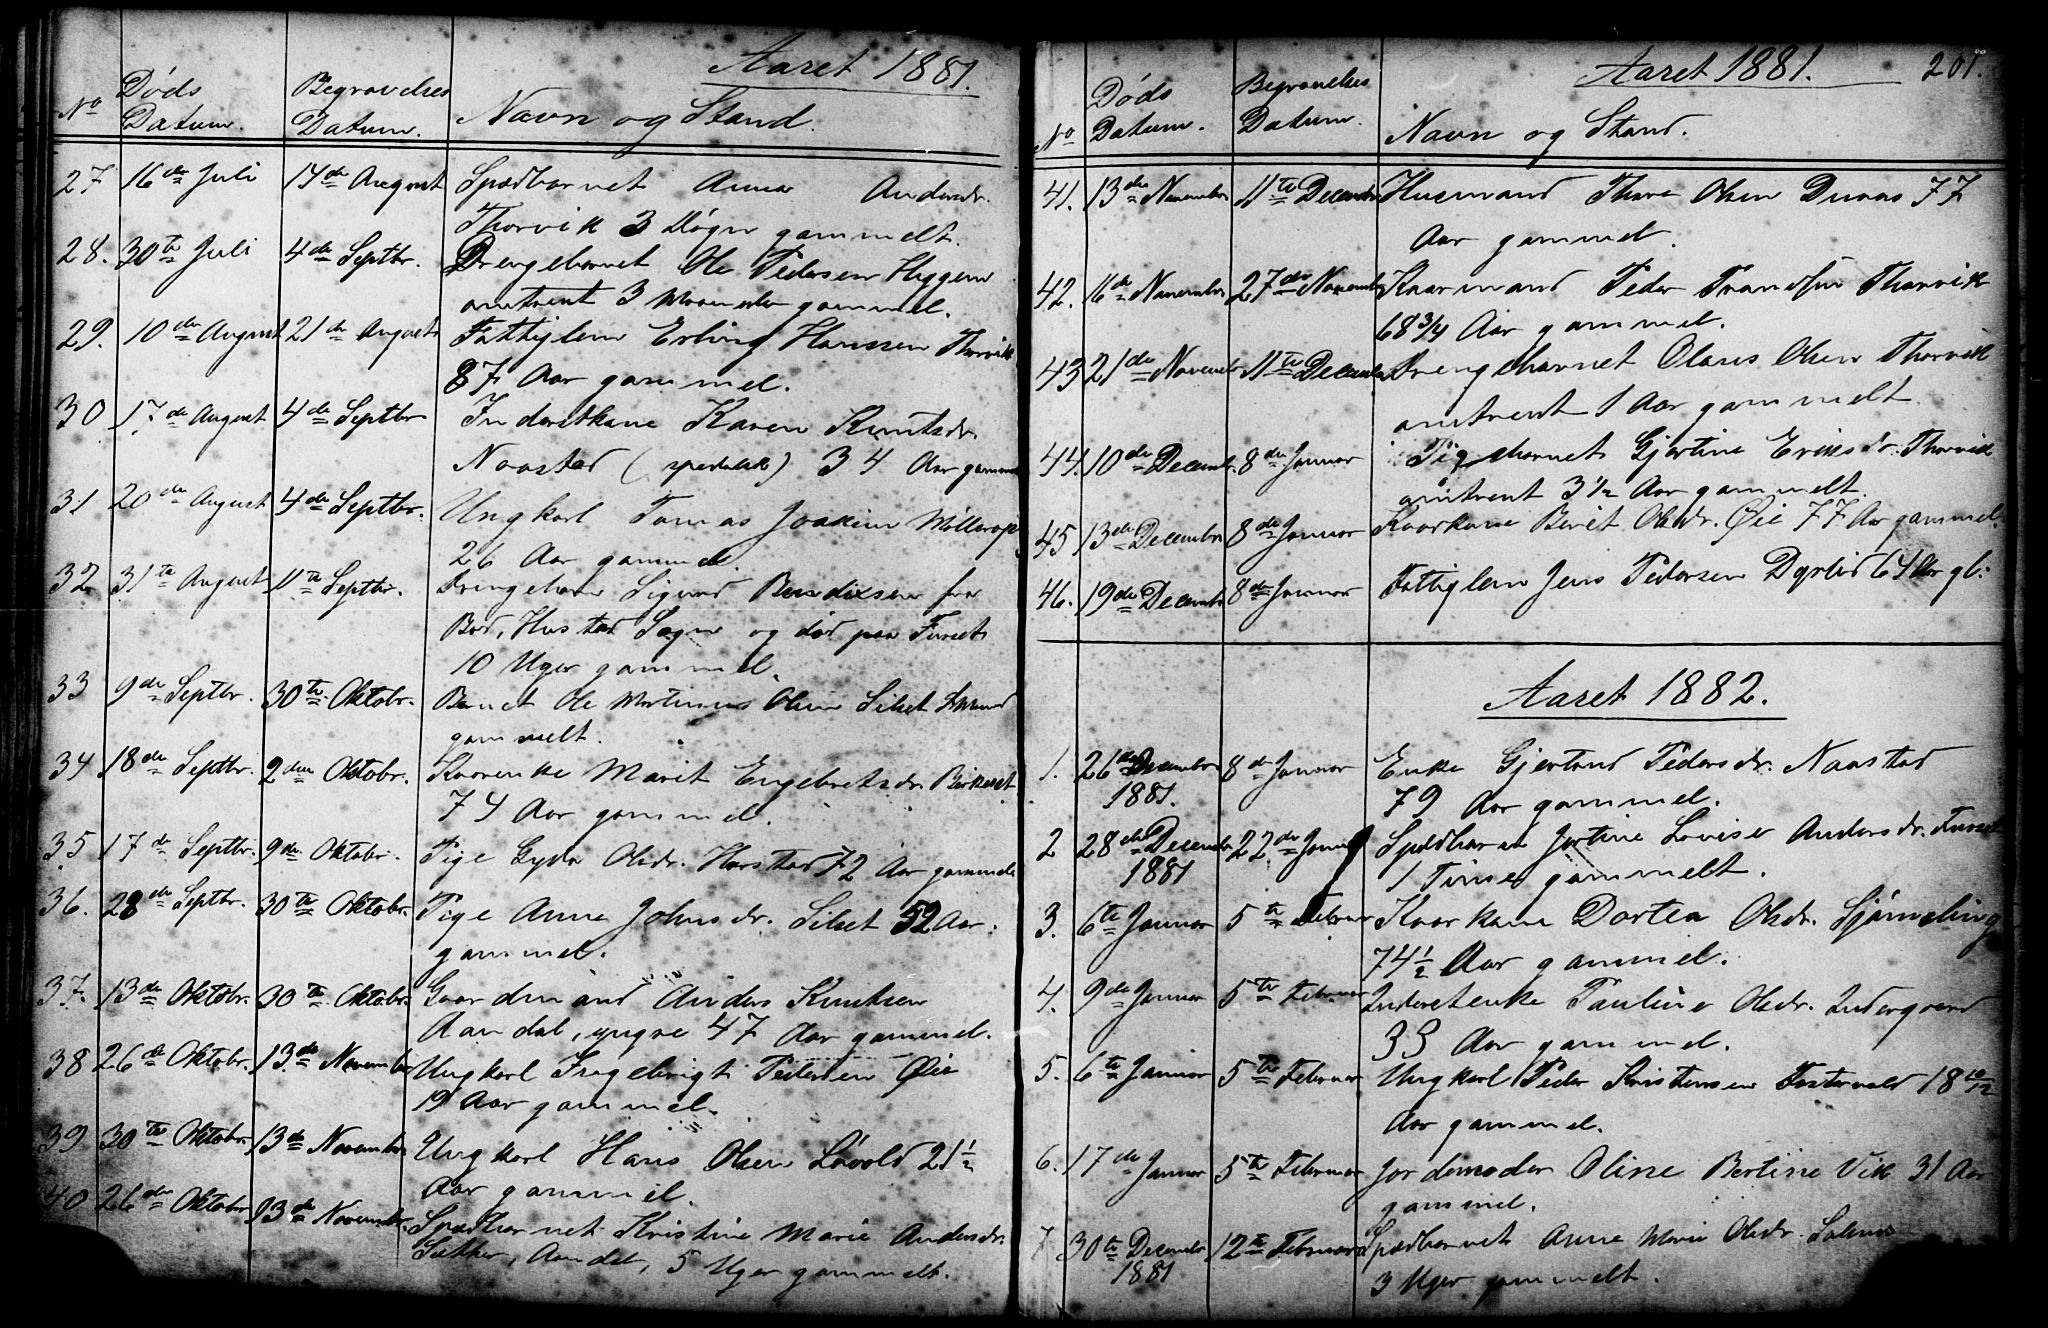 Aaret 1881.
No Døds Datum. Begravelses Datum. Navn og Stand.
27 16de Juli 14de August Spædbarnet Anna Andersdr.
Thorvik 3 Døgn gammelt.
28. 30te Juli 4de Septbr. Drengebarnet Ole Pedersen Huggen
omtrent 3 Maaneder gammel.
29. 10de August 21de August Fattiglem Erling Hanssen Thorvik
87 Aar gammel.
30 17de August 4de Septbr Inderstkane Karen Knutsdr.
Naastad (spedalsk) 34 Aar gammel
31 20de August 4de Septbr. Ungkarl Tomas Joakim
26 Aar gammel.
32 31te August 11te Septbr. Drengebarn Sigurd Bendixsen fra
Bod, Hustad Sogn og død paa Furset
10 Uger gammel.
33 9de Septbr. 30te Oktobr. Barnet Ole Martinus Olsen Silset
gammelt.
34 18de Septbr. 2den Oktobr. Kaarenke Marit Engebretsdr. Birkeset
74 Aar gammel.
35 17de Septbr. 9de Oktobr. Pige Gyda Olsdr. Harstad 72 Aar gammel
36. 28de Septbr. 30te Oktobr. Pige Anne Johnsdr. Silset 52 Aar
gammel.
37. 13de Oktobr. 30te Oktobr. Gaardmand Anders Knutsen
Aandal, yngre 47 Aar gammel.
38 26de Oktobr. 13de November Ungkarl Ingebrigt Pedersen Øie
19 Aar gammel.
39 30te Oktobr. 13de November Ungkarl Hans Olsen Løvold 21 1/2
Aar gammel.
40 26de Oktobr 13de Novembr. Spædbarnet Kristine Marie Andersdr.
Sæther, Aandal, 5 Uger gammelt.
Aaret 1881. 201.
No Døds Datum. Begravelses Datum. Navn og Stand.
41. 13de November 11te Decembr Husmand Thore Olsen 77
Aar gammel.
42. 16de November 27de Novembr Kaarmand Peder Thorvik
68 3/4 Aar gammel.
43 21de Novembr 11te Decembr Drengebarnet Olaus Olsen Thorvik
omtrent 1 Aar gammelt.
44. 10de Decembr 8de Januar Pigebarnet Gjertine Eriksdr. Thorvik
omtrent 3 1/2 Aar gammelt.
45 13de Decembr 8de Januar Kaarkone Berit Olsdr. Øie 77 Aar gammel.
46. 19de Decembr 8de Januar Fattiglem Jens Pedersen Dyrlid 64 Aar gl:
Aaret 1882.
1. 26de Decembr 8de Januar Enke Gjertrud Pedersdr. Naastad
1881. 79 Aar gammel.
2 28de Decembr 22de Januar Spædbarn Jertine Lovise Andersdr. Furset
1881 1 Time gammelt.
3. 6te Januar 5te Februar Kaarkone Dortea Olsdr. Sjømeling
74 1/2 Aar gammel.
4. 9de Januar 5te Februar Inderstenke Pauline Olsdr. Indergaard
33 Aar gammel.
5. 6te Januar 5te Februar Ungkarl Peder Kristensen Fostervold 18 10/12
Aar gammel.
6. 17de Januar 5te Februar Jordemoder Oline Bertine Vik 31 Aar
gammel.
7. 30te Decembr 12te Februar Spædbarnet Anne Marie Olsdr.
1881 3 Uger gammelt.